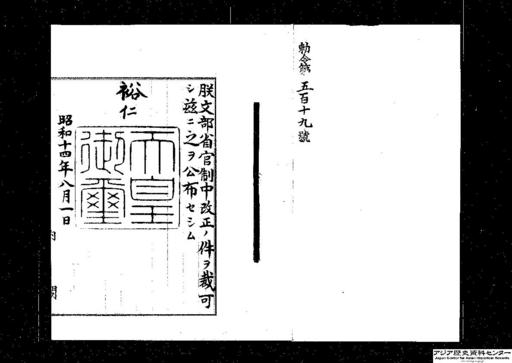 勅令第五百十九號
朕文部省官制中改正ノ件ヲ裁可
シ茲ニ之ヲ公布セシム
裕仁
天皇
御璽
昭和十四年八月一日
内閣
アジア歴史資料センター
Japan Center for Asian Historical Records